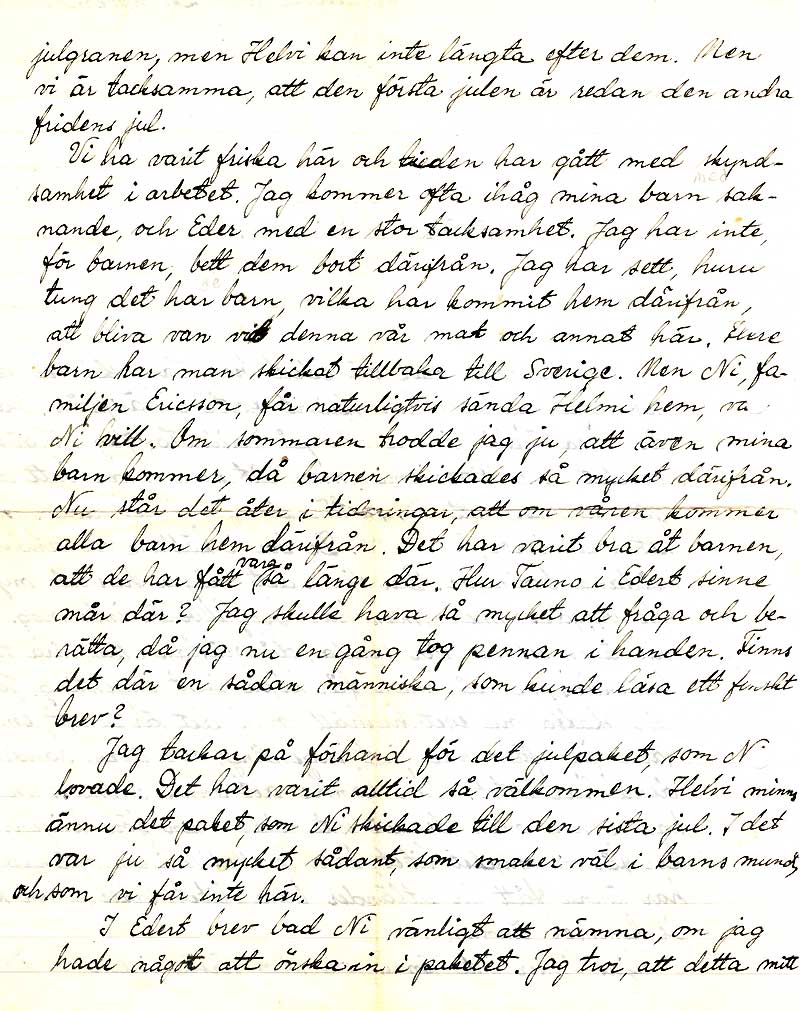 julgranen, men Helvi kan inte längta efter dem. Men
vi är tacksamma, att den första julen är redan den andra
fridens jul.
Vi ha varit friska här och tiden har gått med skynd-
samhet i arbetet. Jag kommer ofta ihåg mina barn sak-
nande, och Eder med en stor tacksamhet. Jag har inte,
för barnen, bett dem bort därifrån. Jag har sett, huru
tung det har barn, vilka har kommit hem därifrån,
att bliva van vid denna vår mat och annat här. Flere
barn har man skickat tillbaka till Sverige. Men Ni, fa-
miljen Ericsson, får naturligtvis sända Helmi hem,
Ni vill. Om sommaren trodde jag ju, att även mina
barn kommer, då barnen skickades så mycket därifrån.
Nu står det åter i tidningar, att om våren kommer
alla barn hem därifrån. Det har varit bra åt barnen,
att de har fått vara så länge där. Hur Tauno i Edert sinne
mår där? Jag skulle hava så mycket att fråga och be-
rätta, då jag nu en gång tog pennan i handen. Finns
det där en sådan människa, som kunde läsa ett finskt
brev?
Jag tackar på förhand för det julpaket, som N
lovade. Det har varit alltid så välkommen. Helvi minns
ännu det paket, som Ni skickade till den sista jul. I det
var ju så mycket sådant, som smaker väl i barns mund,
och som vi får inte här.
I Edert brev bad Ni vänligt att nämna, om jag
hade något att önska in i paketet. Jag tror, att detta mitt